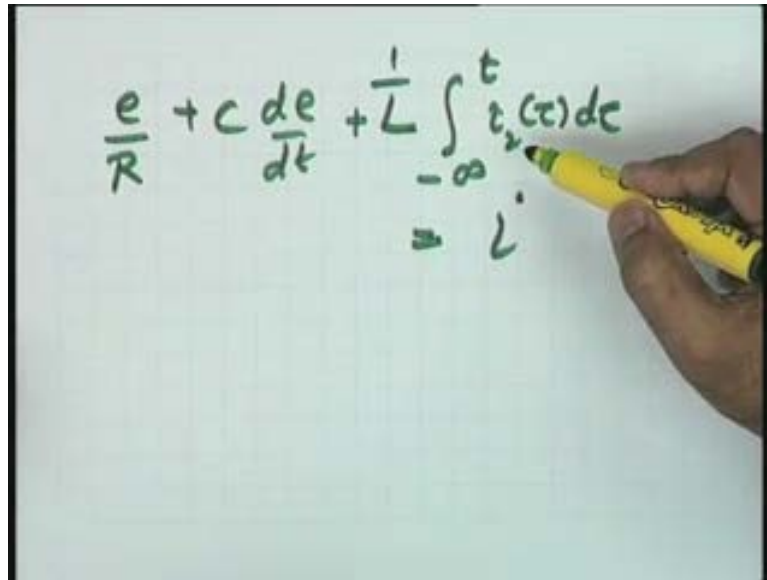 e/R + C de/dt + 1/L ∫_{-∞}^{t} i₂(τ) dτ
= i